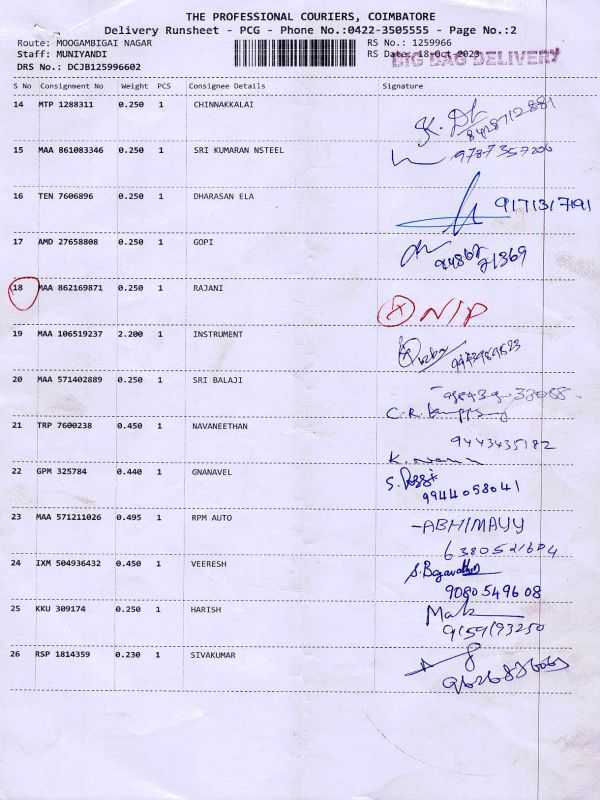 THE PROFESSIONAL COURIERS, COIMBATORE
Delivery Runsheet - PCG - Phone No.:0422-3505555 - Page No.:2
Route: MOOGAMBIGAI NAGAR RS No.: 1259966
Staff: MUNIYANDI RS Date: 18-Oct-2023 BIG BAG DELIVERY
DRS No.: DCJB125996602
S No Consignment No Weight PCS Consignee Details Signature
14 MTP 1288311 0.250 1 CHINNAKKALAI
8428712881
15 MAA 861083346 0.250 1 SRI KUMARAN NSTEEL
9787357206
16 TEN 7606896 0.250 1 DHARASAN ELA
9171317191
17 AMD 27658808 0.250 1 GOPI
18 MAA 862169871 0.250 1 RAJANI
N/P
19 MAA 106519237 2.200 1 INSTRUMENT
20 MAA 571402889 0.250 1 SRI BALAJI
C.R.
21 TRP 7600238 0.450 1 NAVANEETHAN
9443435182
K.
22 GPM 325784 0.440 1 GNANAVEL
S.
9944058041
23 MAA 571211026 0.495 1 RPM AUTO
-ABHIMAYY
24 IXM 504936432 0.450 1 VEERESH
9080549608
25 KKU 309174 0.250 1 HARISH
9159193250
26 RSP 1814359 0.230 1 SIVAKUMAR